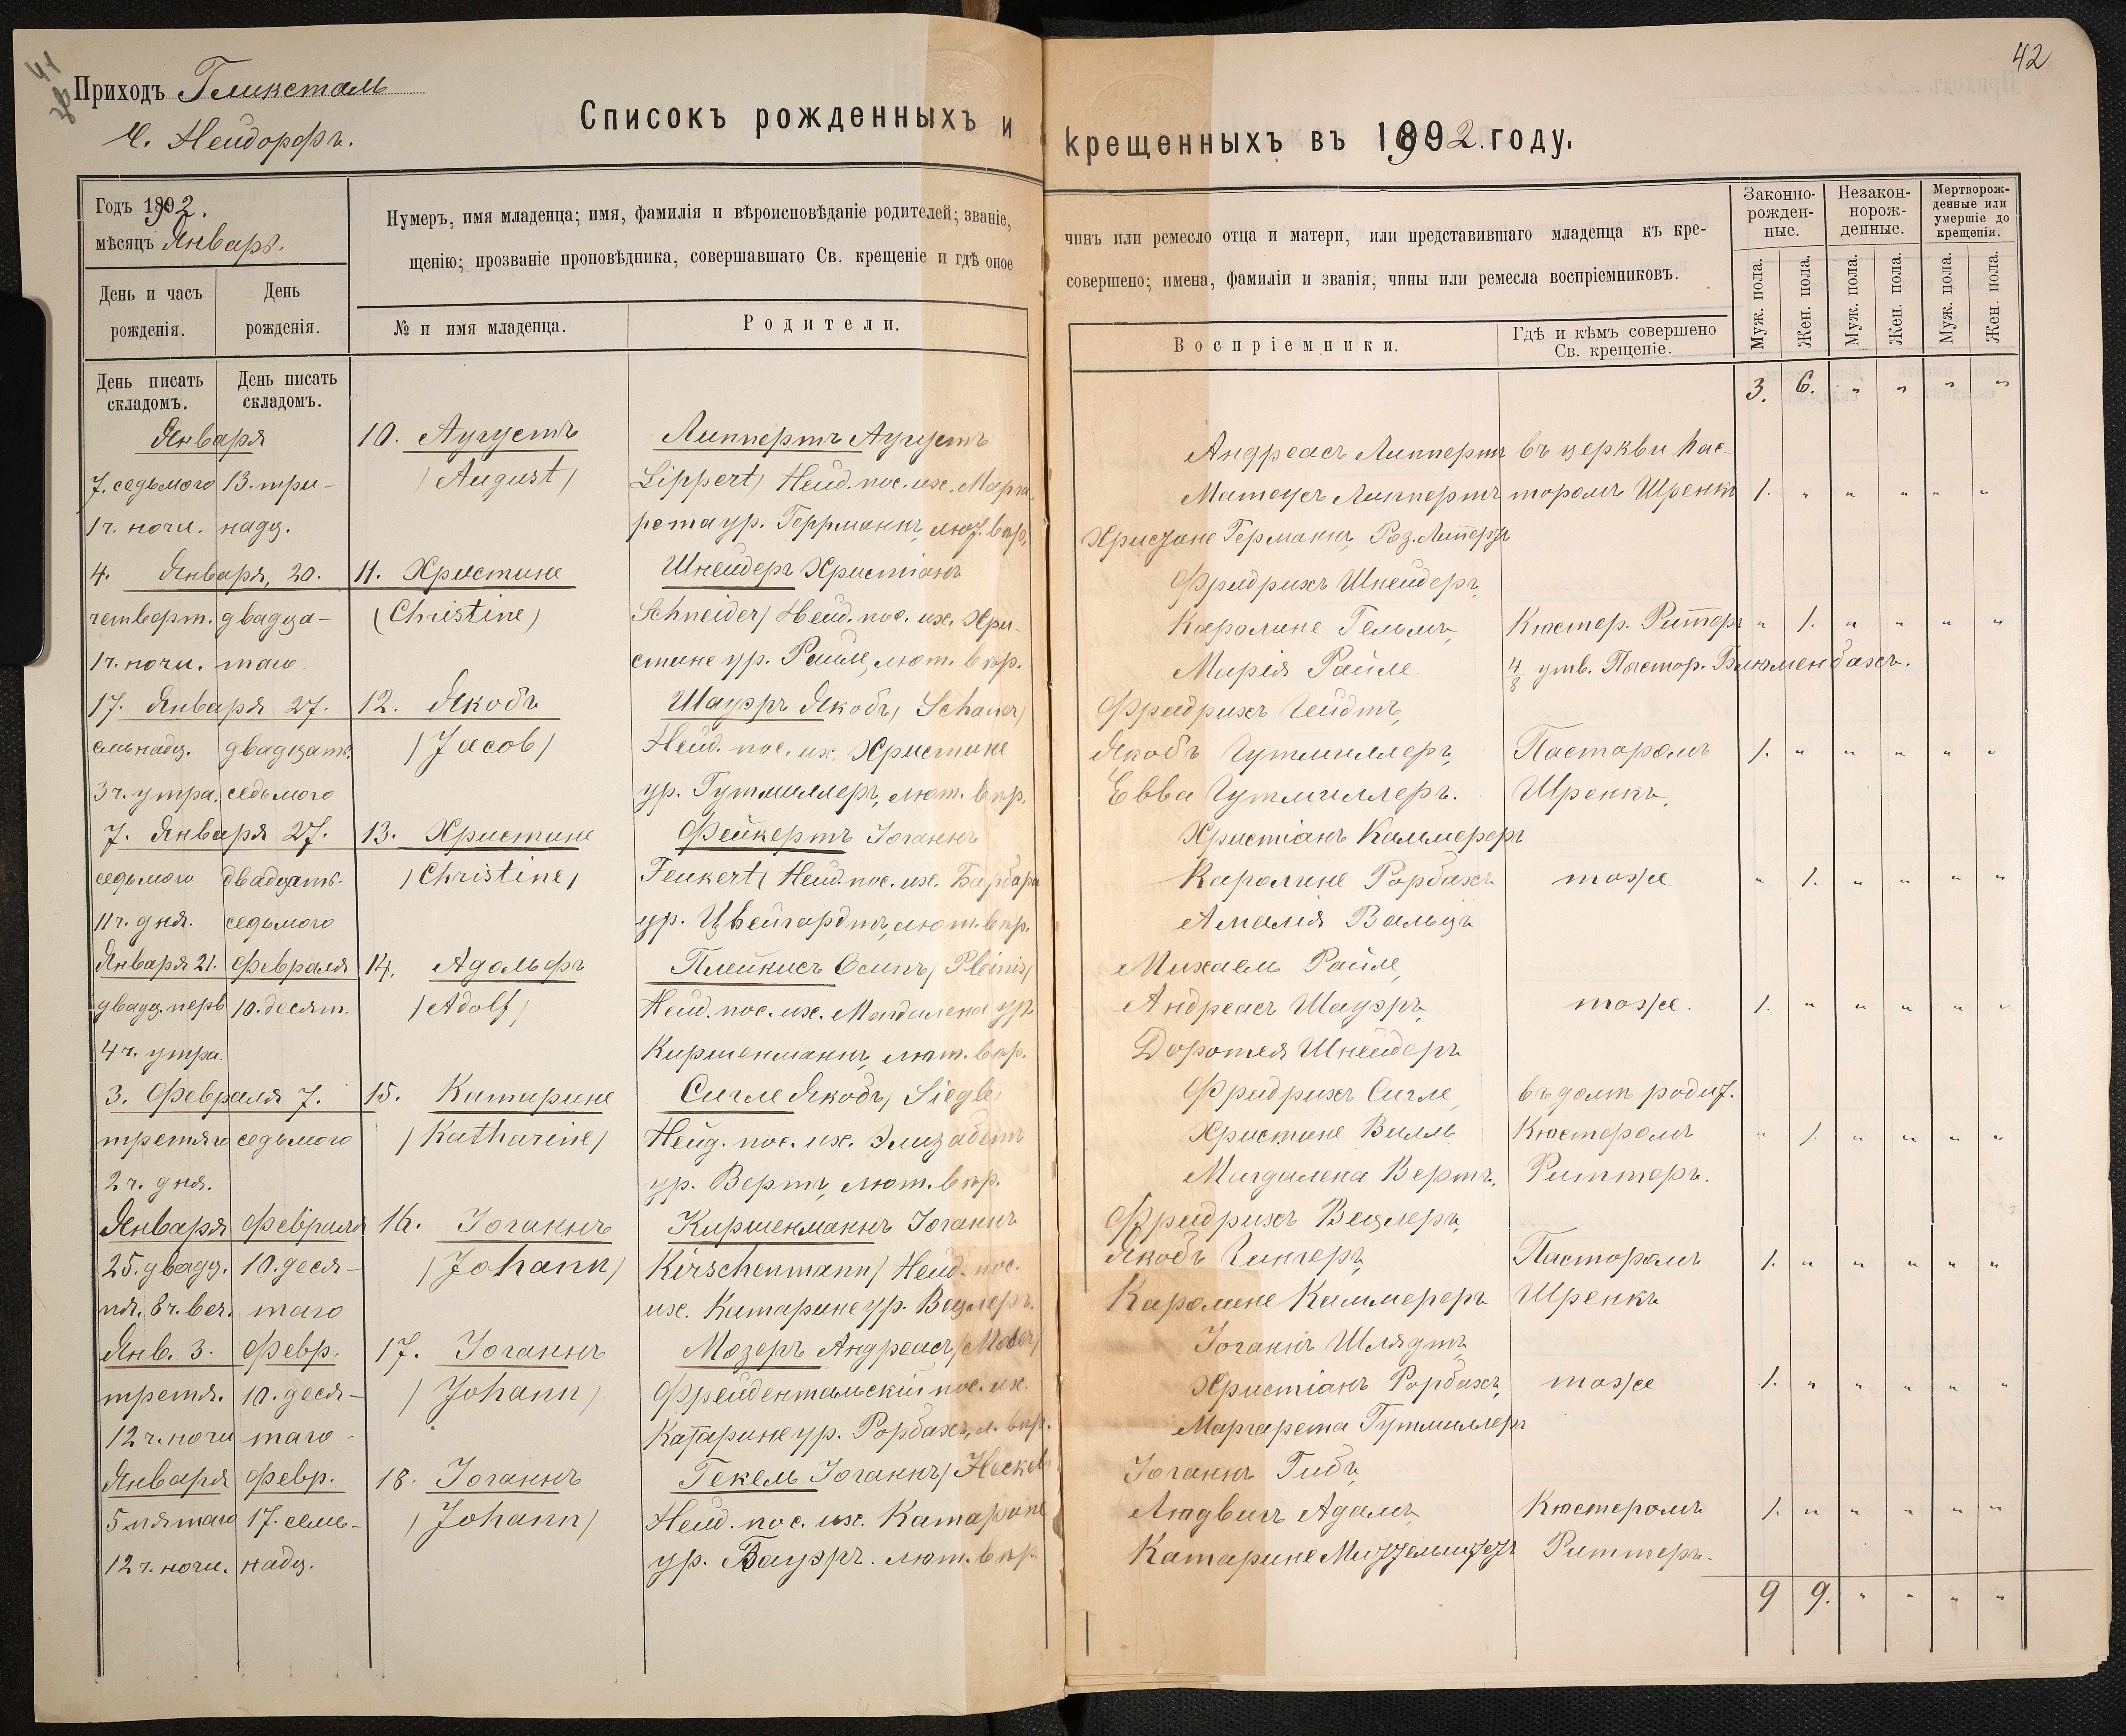 41
Приходъ Глюкстамь
К. Нейдорфъ.
Списокъ рожденныхъ и
Годъ 1892.
мѣсяцъ Январь.
День и часъ рожденія.
День рожденія.
Нумеръ, имя младенца; имя, фамилія и вѣроисповѣданіе родителей; званіе,
щенію; прозваніе проповѣдника, совершавшаго Св. крещеніе и гдѣ оное
№ и имя младенца.
Родители.
День писать складомъ.
День писать складомъ.
Января 10. Августъ Липпертъ Августъ
7. седьмого 13. три- /August/ Lippert/ Нейд. пос. их. Марга-
1 ч. ночи. надц. рета ур. Геррманнъ, лют. впр.
4. Января, 20. 11. Христине Шнейдеръ Христіанъ
четверт. двадца- (Christine) Schneider/ Нейд. пос. их. Хри-
1 ч. ночи. таго стине ур. Райле, лют. впр.
17. Января 27. 12. Якобъ Шауэръ Якобъ, Schauer/
семнадц. двадцать /Jacob/ Нейд. пос. их. Христине
3 ч. утра. седьмого ур. Гутмиллеръ, лют. впр.
7. Января 27. 13. Христине Фейкертъ Іоганнъ
седьмого двадцать- /Christine/ Feukert/ Нейд. пос. их. Барбара
11 ч. дня. седьмого ур. Цвейгардтъ, лют. впр.
Января 21. Февраля 14. Адольфъ Плейнисъ Осипъ, Pleinis/
двадц. перв 10. десят. /Adolf/ Нейд. пос. их. Магдалена ур.
4 ч. утра. Киршенманнъ, лют. впр.
3. Февраля 7. 15. Катарине Сигле Якобъ, Siegle/
третяго седьмого /Katharine/ Нейд. пос. их. Элизабетъ
2 ч. дня. ур. Вертъ, лют. впр.
Января Февраля 16. Іоганнъ Киршенманнъ Іоганнъ
25. двадц. 10. деся- /Johann/ Kirschenmann/ Нейд. пос.
пя. 8 ч. веч. таго их. Катарине ур. Вецлеръ.
Янв. 3. Февр. 17. Іоганнъ Мозеръ Андреасъ,
третя. 10. деся- /Johann/ Фрейдентальскій пос. их.
12 ч. ночи таго Катарине ур. Рорбахъ, л. впр.
Января Февр. 18. Іоганнъ Гекель Іоганнъ, Heckel
5 пятаго 17. семь- /Johann/ Нейд. пос. их. Катарине
12 ч. ночи. надц. ур. Бауэръ. лют. впр.
42
крещенныхъ въ 1892. году.
чинъ или ремесло отца и матери, или представившаго младенца къ кре-
совершено; имена, фамиліи и званія, чины или ремесла воспріемниковъ.
Воспріемники.
Гдѣ и кѣмъ совершено
Св. крещеніе.
Законно-
рожден-
ные.
Незакон-
норож-
денные.
Мертворож-
денные или
умершіе до
крещенія.
Муж. пола.
Жен. пола.
Муж. пола.
Жен. пола.
Муж. пола.
Жен. пола.
3. 6. " " " "
Андреасъ Липпертъ въ церкви пас-
Матеусъ Липпертъ торомъ Шренкъ 1. " " " " "
Христине Германнъ, Род. Липертъ
Фридрихъ Шнейдеръ,
Каролине Гельмъ, Кюстер. Риттеръ " 1. " " " "
Марія Райле 4/8 утв. Пастор. Блюменбахъ.
Фридрихъ Гейдтъ,
Якобъ Гутмиллеръ, Пасторомъ 1. " " " " "
Евва Гутмиллеръ. Шренкъ.
Христіанъ Каммереръ
Каролине Рорбахъ тоже " 1. " " " "
Амалія Вальцъ
Михаель Райле,
Андреасъ Шауэръ, тоже. 1. " " " " "
Доротея Шнейдеръ
Фридрихъ Сигле, въ домѣ родит.
Христине Вилль Кюстеромъ " 1. " " " "
Магдалена Вертъ. Риттеръ.
Фридрихъ Вецлеръ,
Якобъ Гингеръ, Пасторомъ 1. " " " " "
Каролине Каммереръ Шренкъ
Іоганнъ Шлядтъ,
Христіанъ Рорбахъ, тоже 1. " " " " "
Маргарета Гутмиллеръ
Іоганнъ Гибъ,
Людвигъ Адамъ, Кюстеромъ 1. " " " " "
Катарине Риттеръ.
9 9. " " " "